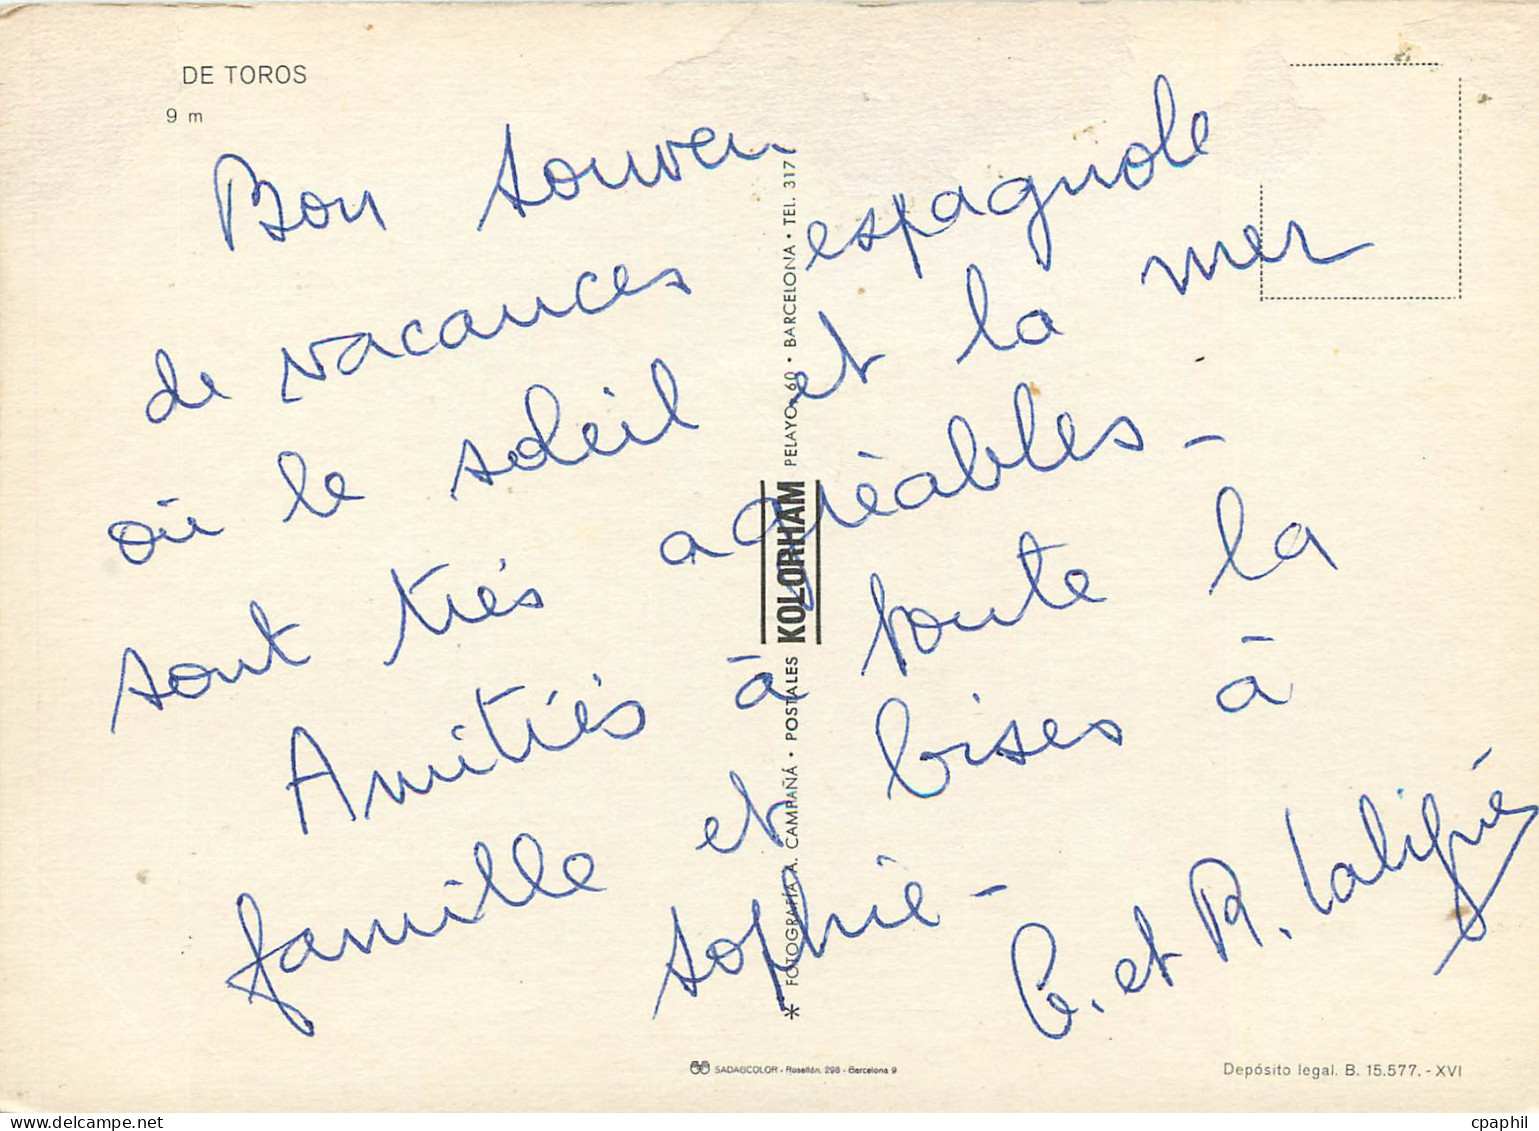 DE TOROS
9 m
Bon souven
de vacances espagnole
où le soleil et la mer
sont très agréables -
Amitiés à toute la
famille et bises à
sophie -
G. et R.
* FOTOGRAFÍA A. CAMPAÑÁ • POSTALES KOLORHAM PELAYO, 60 • BARCELONA • TEL. 317
SADAGCOLOR - Rosellón, 298 - Barcelona 9
Depósito legal. B. 15.577. - XVI
delcampe.net
cpaphil